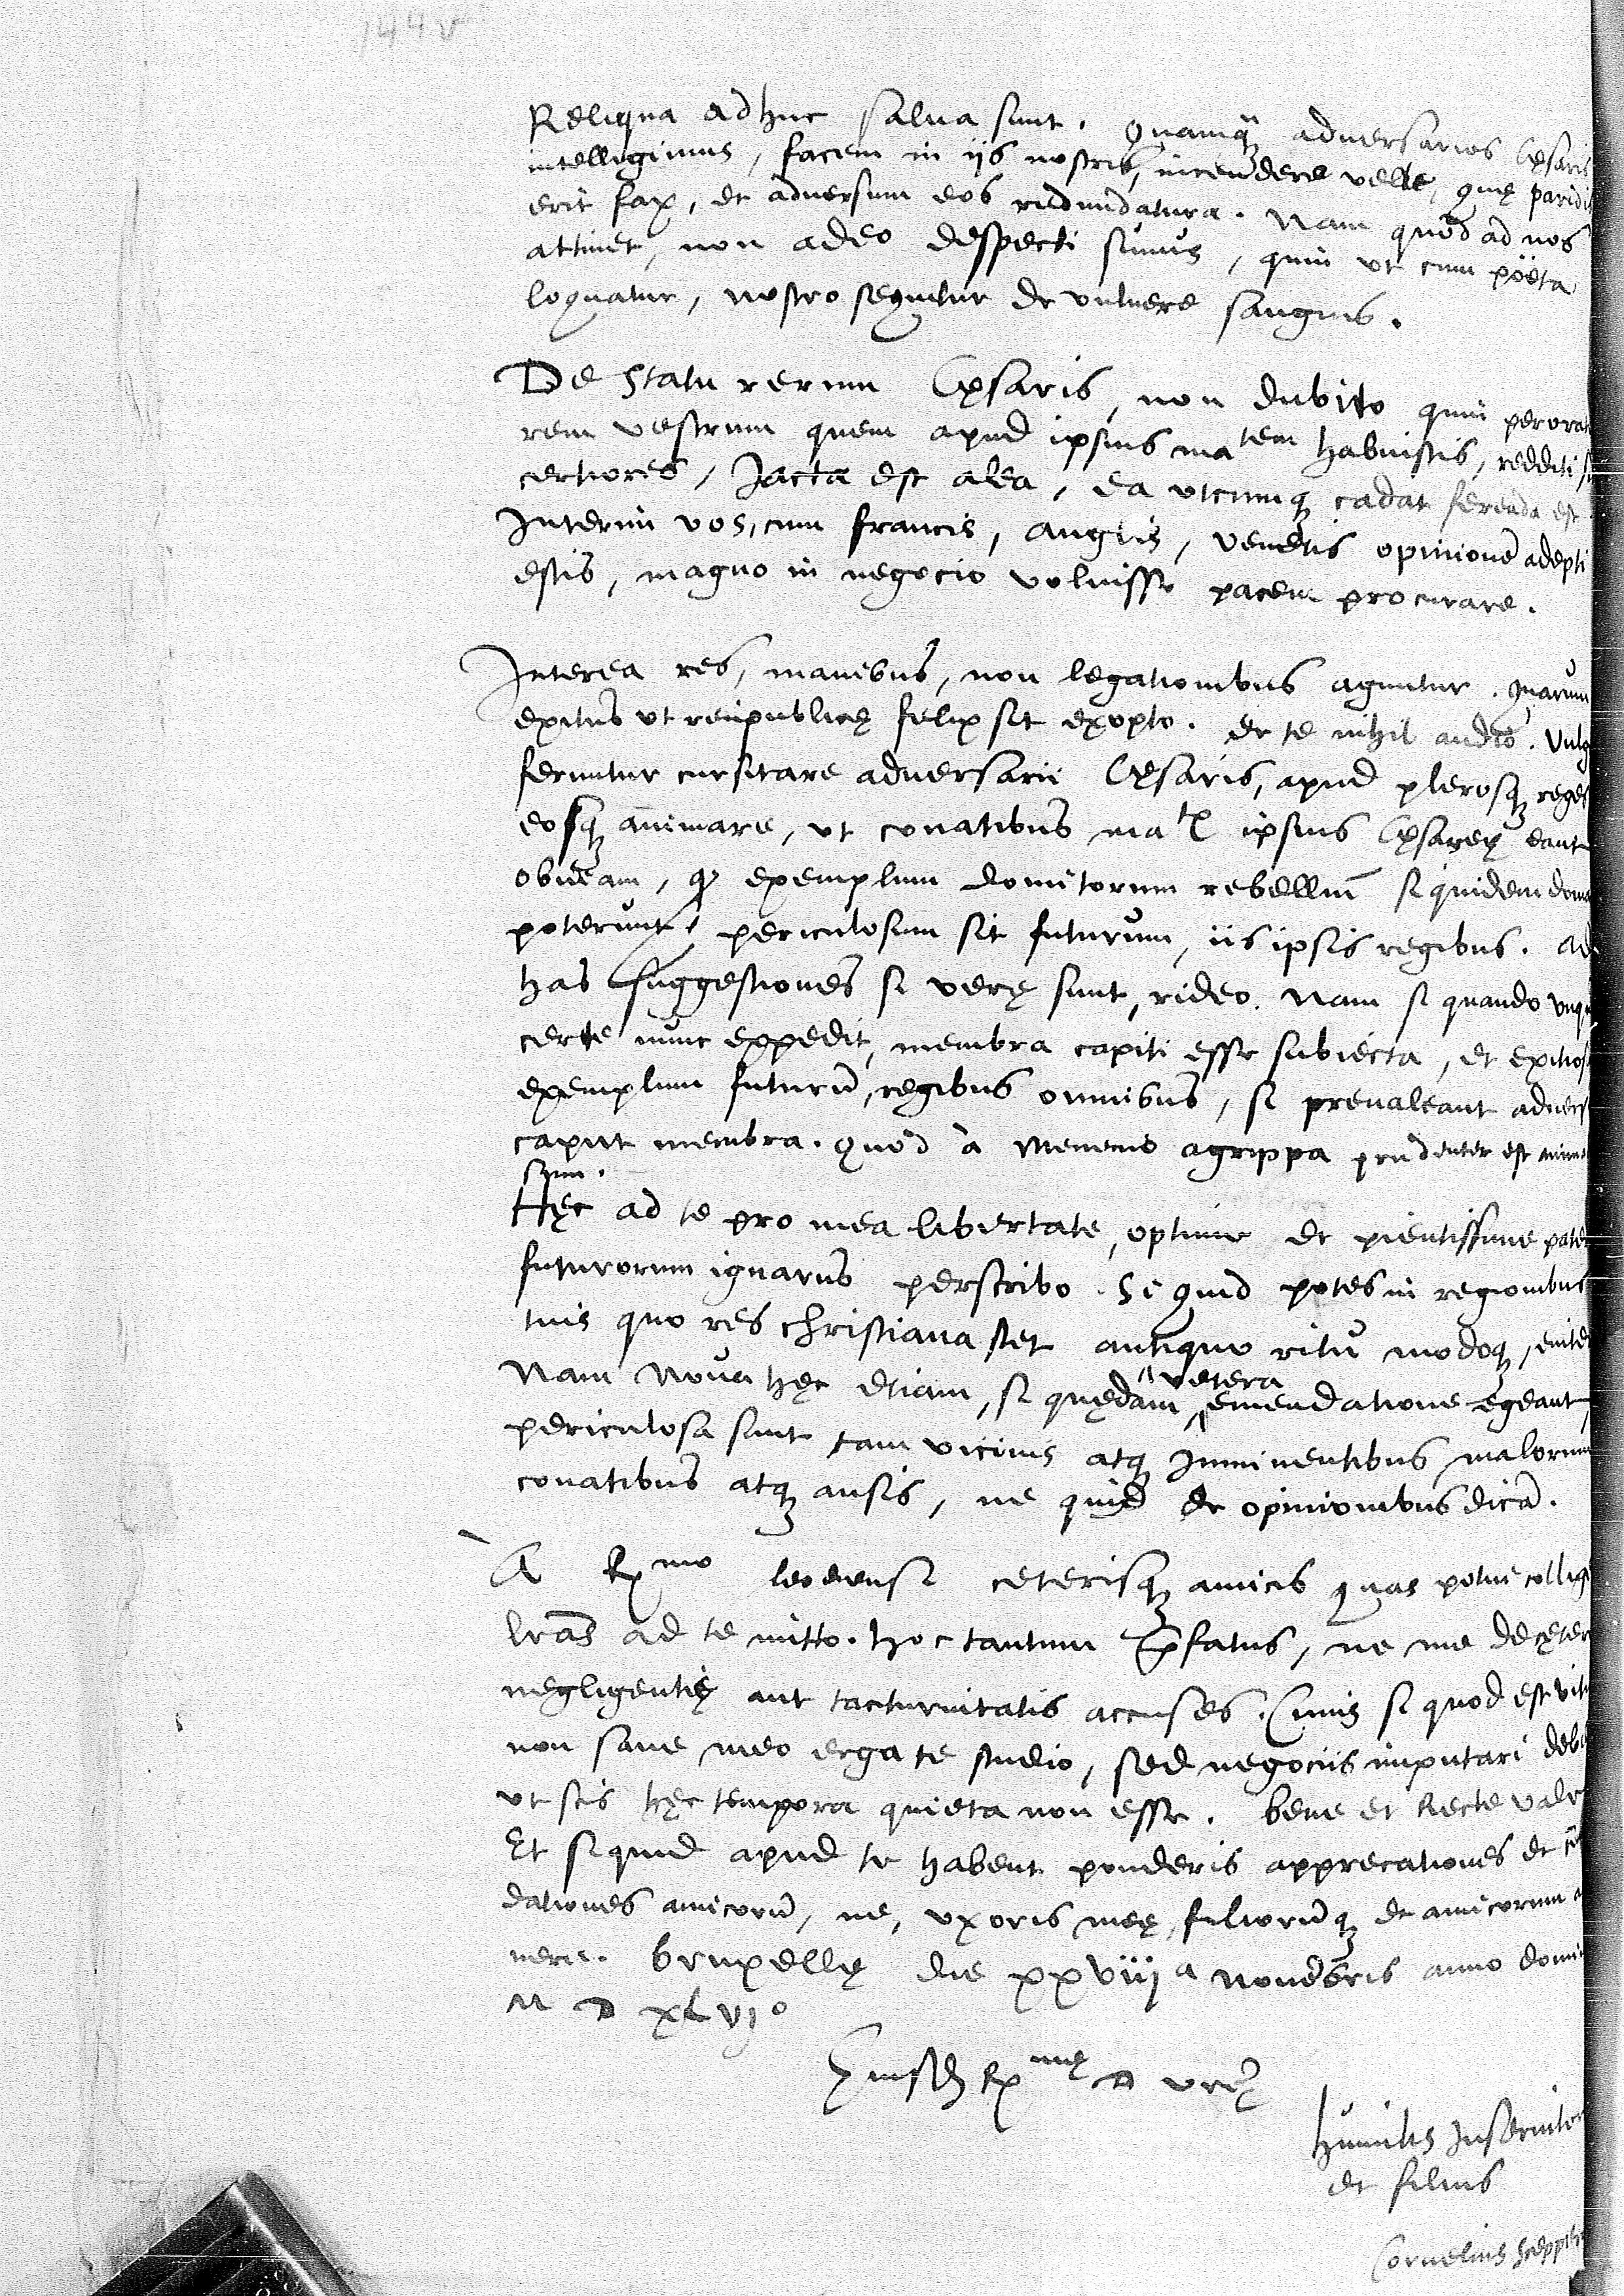 144v
Reliqua adhuc salua sunt. Quamqȝ aduersarios Cęsaris
intelligimus, facem in ijs nostris, incendere velle, quę paridis
erit fax, et aduersum eos redundatura. Nam quod ad nos
attinet, non adeo despecti sumus, quin vt cum poëta
loquatur, nostro sequitur de vulnere sanguis.
De statu rerum Cęsaris, non dubito quin per orato
rem vestrum quem apud ipsius ma tem habuistis, redditi si
certiores, Jacta est alea, ea vtcumqȝ cadat ferenda est.
Interim vos, cum francis, anglis, venetis opinionē adepti
estis, magno in negocio voluisse pacem procurare.
Interea res, manibus, non legationibus aguntur. Quarum
exitus vt reipublicę felix sit exopto. de te nihil audio. Vulg
feruntur cursitare aduersarii Cęsaris, apud plerosqȝ reges
eosqȝ animare, vt conatibus ma tis ipsius Cęsareę eant
obuiam, qȝ exemplum domitorum rebelliū si quidem doma
poterunt, periculosum sit futurum, iis ipsis regibus. Ad
has suggestiones si verę sunt, rideo. Nam si quando vnq
certe nunc expedit, membra capiti esse subiecta, et exitios
exemplum futurū, regibus omnibus, si preualeant aduers
caput membra. Quod à Menenio agrippa prudenter est
sum.
Hęc ad te pro mea libertate, optime et pientissime pater
futurorum ignarus perscribo. Si quid potes in regionibus
tuis quo res christiana stet antiquo ritu modoqȝ, enite
Nam noua hęc etiam, si quędam vetera emendatione egeant,
periculosa sunt tam vicinis atqȝ imminentibus malorum
conatibus atqȝ ausis, ne quid de opinionibus dicā.
A Rmo leodiensi ceterisqȝ amicis quas potui collige
lrās ad te mitto. Hoc tantum p̄fatus, ne me de cęter
negligentię aut taciturnitatis accuses. Cuius si quod est viti
non sane meo erga te studio, sed negociis imputari debe
vt scis hęc tempora quieta non esse. bene et Recte vale
Et si quid apud te habent ponderis apprecationes et cō
dationes amicorū, me, vxoris meę, filiorūqȝ et amicorum
bruxellę die xxviij a nouēbris anno domi
M D XLVJ o
Eiusdē Rmę D vrę
humilis Inseruitor
et filius
Cornelius Scepper